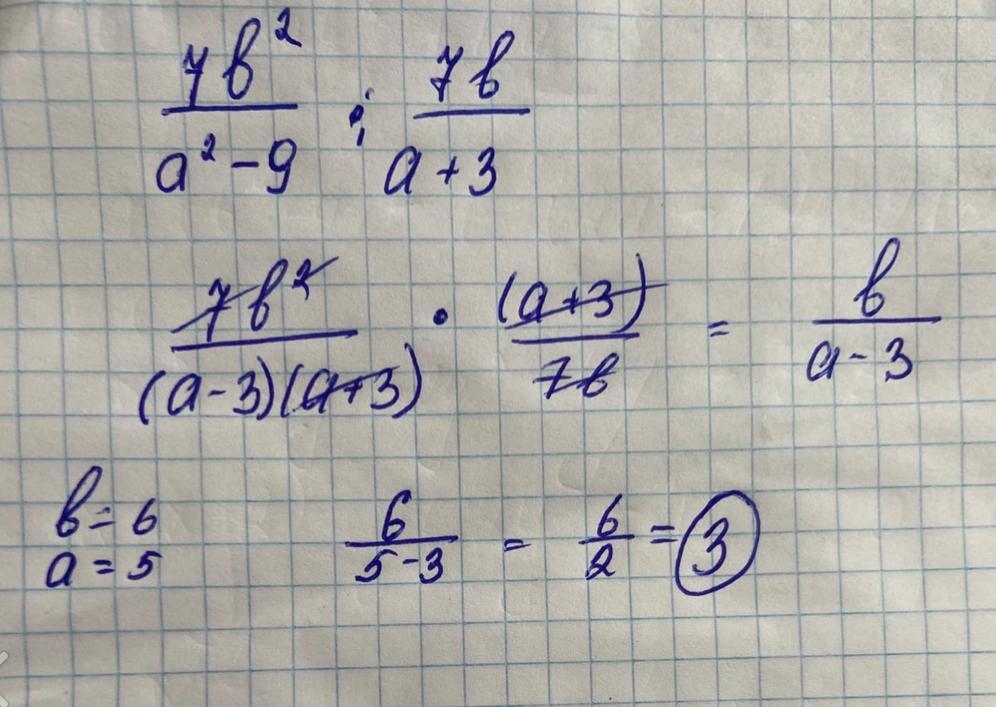 7b² / (a² - 9) : 7b / (a + 3)
7b² / ((a - 3)(a + 3)) · (a + 3) / 7b = b / (a - 3)
b = 6
a = 5
6 / (5 - 3) = 6 / 2 = 3